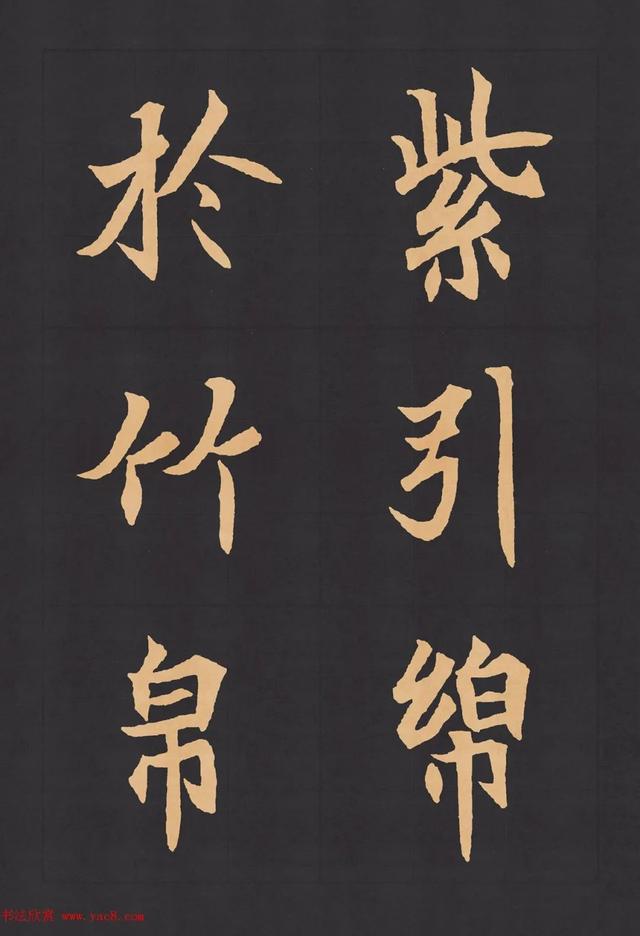 紫引綿
於竹帛
书法欣赏 www.yac8.com